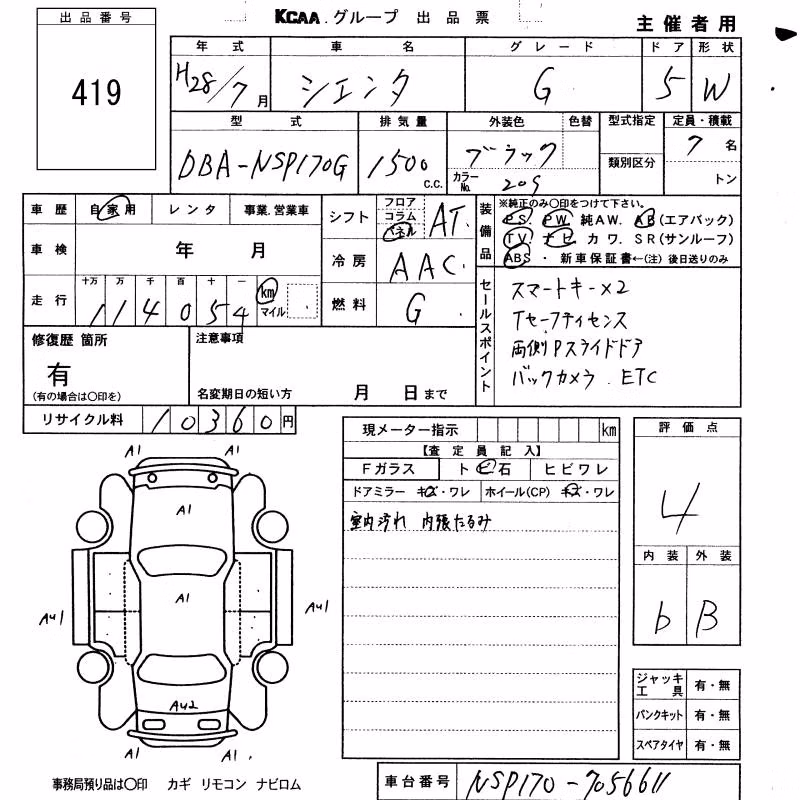 出品番号
KCAA グループ 出品票
主催者用
419
年式 車名 グレード ドア 形状
H28/7月 シエンタ G 5 W
型式 排気量 外装色 色替 型式指定 定員・積載
DBA-NSP170G 1500 c.c. ブラック 7名
カラーNo. 209 類別区分 トン
車歴 自家用 レンタ 事業.営業車 シフト フロア コラム パネル AT
装備品 ※純正のみ〇印をつけて下さい。
PS. PW. 純AW. AB(エアバック)
TV. ナビ. カワ. SR(サンルーフ)
ABS ・ 新車保証書←(注) 後日送りのみ
車検 年 月 冷房 AAC
走行 十万 万 千 百 十 一
114054 km マイル 燃料 G
セールスポイント
スマートキー×2
Tセーフティセンス
両側Pスライドドア
バックカメラ. ETC
修復歴 箇所 注意事項
有
(有の場合は〇印を) 名変期日の短い方 月 日まで
リサイクル料 10360円
現メーター指示 km
【査定員記入】
Fガラス ト ビ 石 ヒビワレ
ドアミラー キズ・ワレ ホイール(CP) キズ・ワレ
室内汚れ 内張たるみ
評価点
4
内装 外装
b B
A1 A1
A1
A1
AU1 AU1
AU2
A1 A1
ジャッキ工具 有・無
パンクキット 有・無
スペアタイヤ 有・無
事務局預り品は〇印 カギ リモコン ナビロム
車台番号 NSP170-7056611